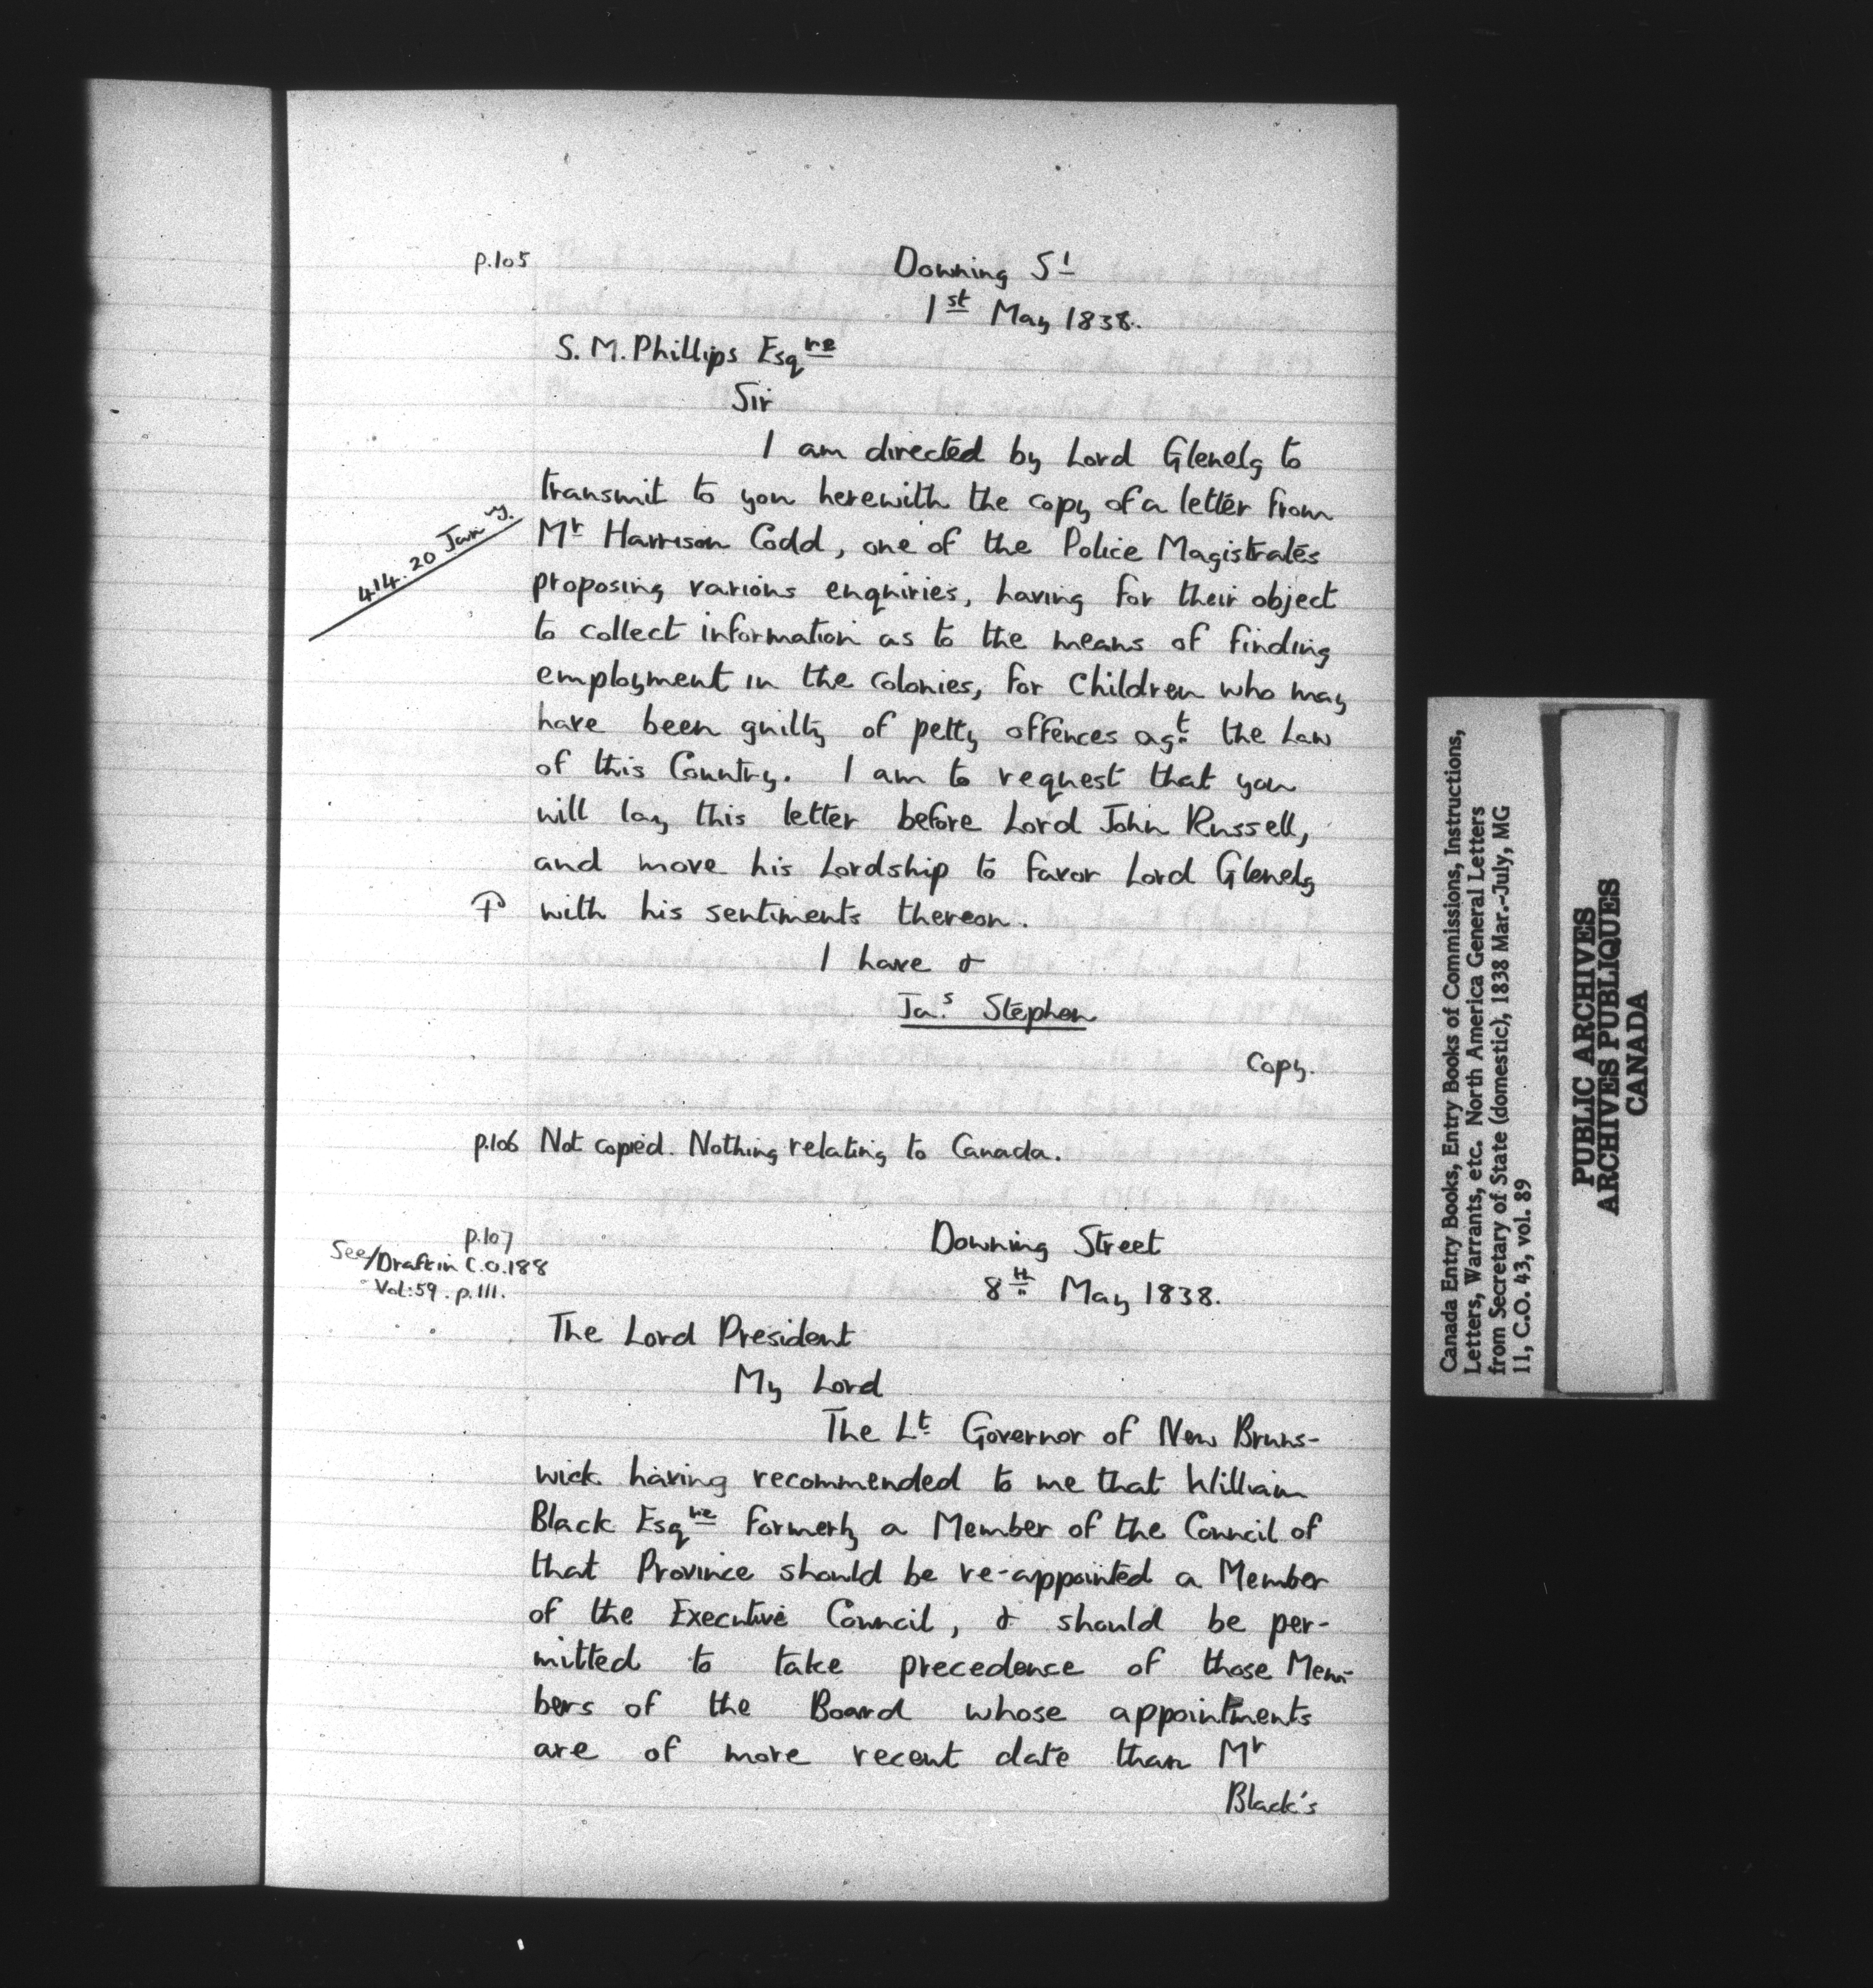 p.105
Downing St
1st May 1838.
S. M. Phillips Esqre
Sir
I am directed by Lord Glenelg to
transmit to you herewith the copy of a letter from
Mr Harrison Codd, one of the Police Magistrates
414. 20 Jany.
proposing various enquiries, having for their object
to collect information as to the means of finding
employment in the colonies, for Children who may
have been guilty of petty offences agt. the Law
of this Country. I am to request that you
will lay this letter before Lord John Russell,
and move his Lordship to favor Lord Glenelg
with his sentiments thereon.
I have &
Jas. Stephen
Copy.
p.106 Not copied. Nothing relating to Canada.
p.107
See/Draft in C.O.188
Vol:59. p.111.
Downing Street
8th May 1838.
The Lord President
My Lord
The Lt Governor of New Bruns-
wick having recommended to me that William
Black Esqre formerly a Member of the Council of
that Province should be re-appointed a Member
of the Executive Council, & should be per-
mitted to take precedence of those Mem-
bers of the Board whose appointments
are of more recent date than Mr
Black's
Canada Entry Books, Entry Books of Commissions, Instructions,
Letters, Warrants, etc. North America General Letters
from Secretary of State (domestic), 1838 Mar.-July, MG
11, C.O. 43, vol. 89
PUBLIC ARCHIVES
ARCHIVES PUBLIQUES
CANADA